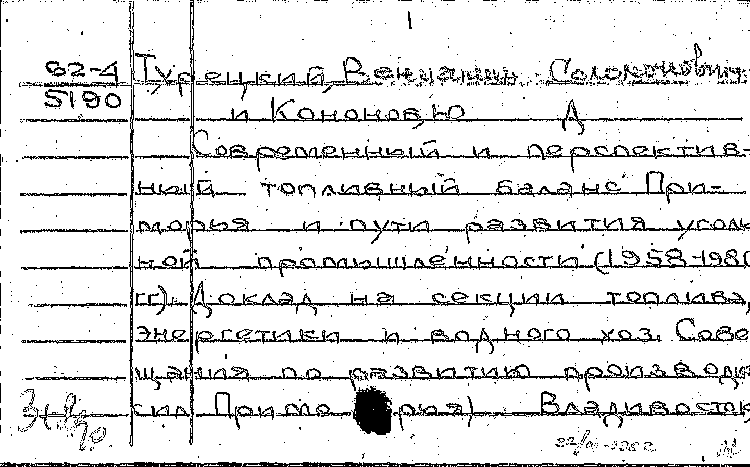 1
62-4 Турецкий, Вениамин Соломонович
5190 и Кононов, Ю Д
Современный и перспектив-
ный топливный баланс При-
морья и пути развития уголь
ной промышленности (1958-1980
гг). Доклад на секции топлива,
энергетики и водного хоз. Сове
щания по развитию производи
сил Примо рья) Владивосток